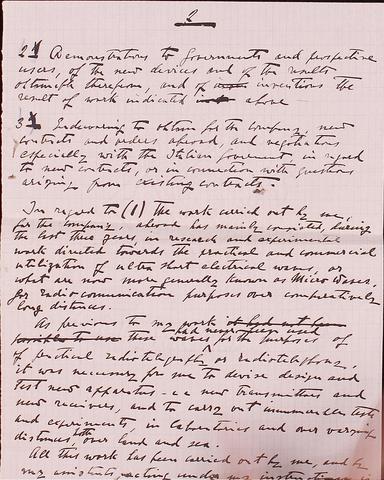 2
2) Demonstrations to Governments and prospective
users, of the new devices and of the results
obtainable therefrom, and of inventions the
result of work indicated above
3) Endeavouring to obtain for the company new
contracts and orders abroad, and negotiations
especially with the Italian Government, in regard
to new contracts, or in connection with questions
arising from existing contracts.
In regard to (1) The work carried out by me,
for the company, abroad has mainly consisted, during
the last three years, in research and experimental
work directed towards the practical and commercial
utilization of ultra short electrical waves, or
what are now more generally known as Micro Waves,
for radiocommunication purposes over comparatively
long distances.
As previous to my work it had not been
possible to use these had never been used waves for the purposes of
of practical radiotelegraphy or radiotelephony,
it was necessary for me to devise design and
test new apparatus - i.e new transmitters and
new receivers, and to carry out innumerable tests
and experiments, in laboratories and over varying
distances, both over land and sea.
All this work has been carried out by me, and by
my assistants acting under my instructions in